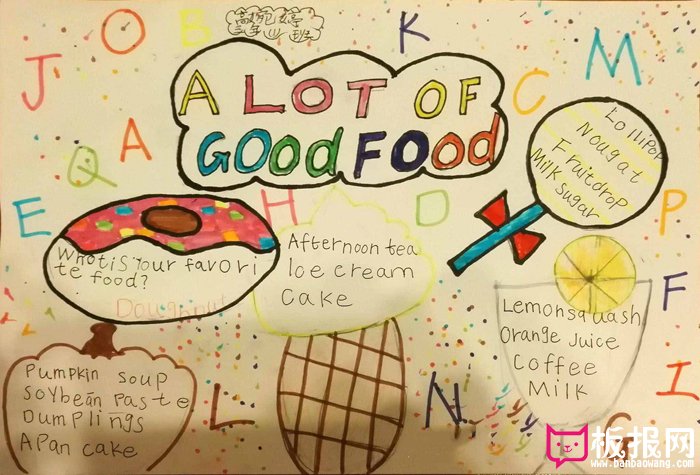 A LOT OF
GOOd FOOd
Lollipop
Nougat
Fruitdrop
Milk sugar
What is your favori
te food?
Doughnut
Afternoon tea
Ice cream
cake
Lemonsquash
Orange Juice
Coffee
Milk
Pumpkin soup
Soybean paste
Dumplings
A pan cake
J
O
B
K
M
C
A
Q
E
H
D
P
F
I
L
N
G
板报网
www.banbaowang.com